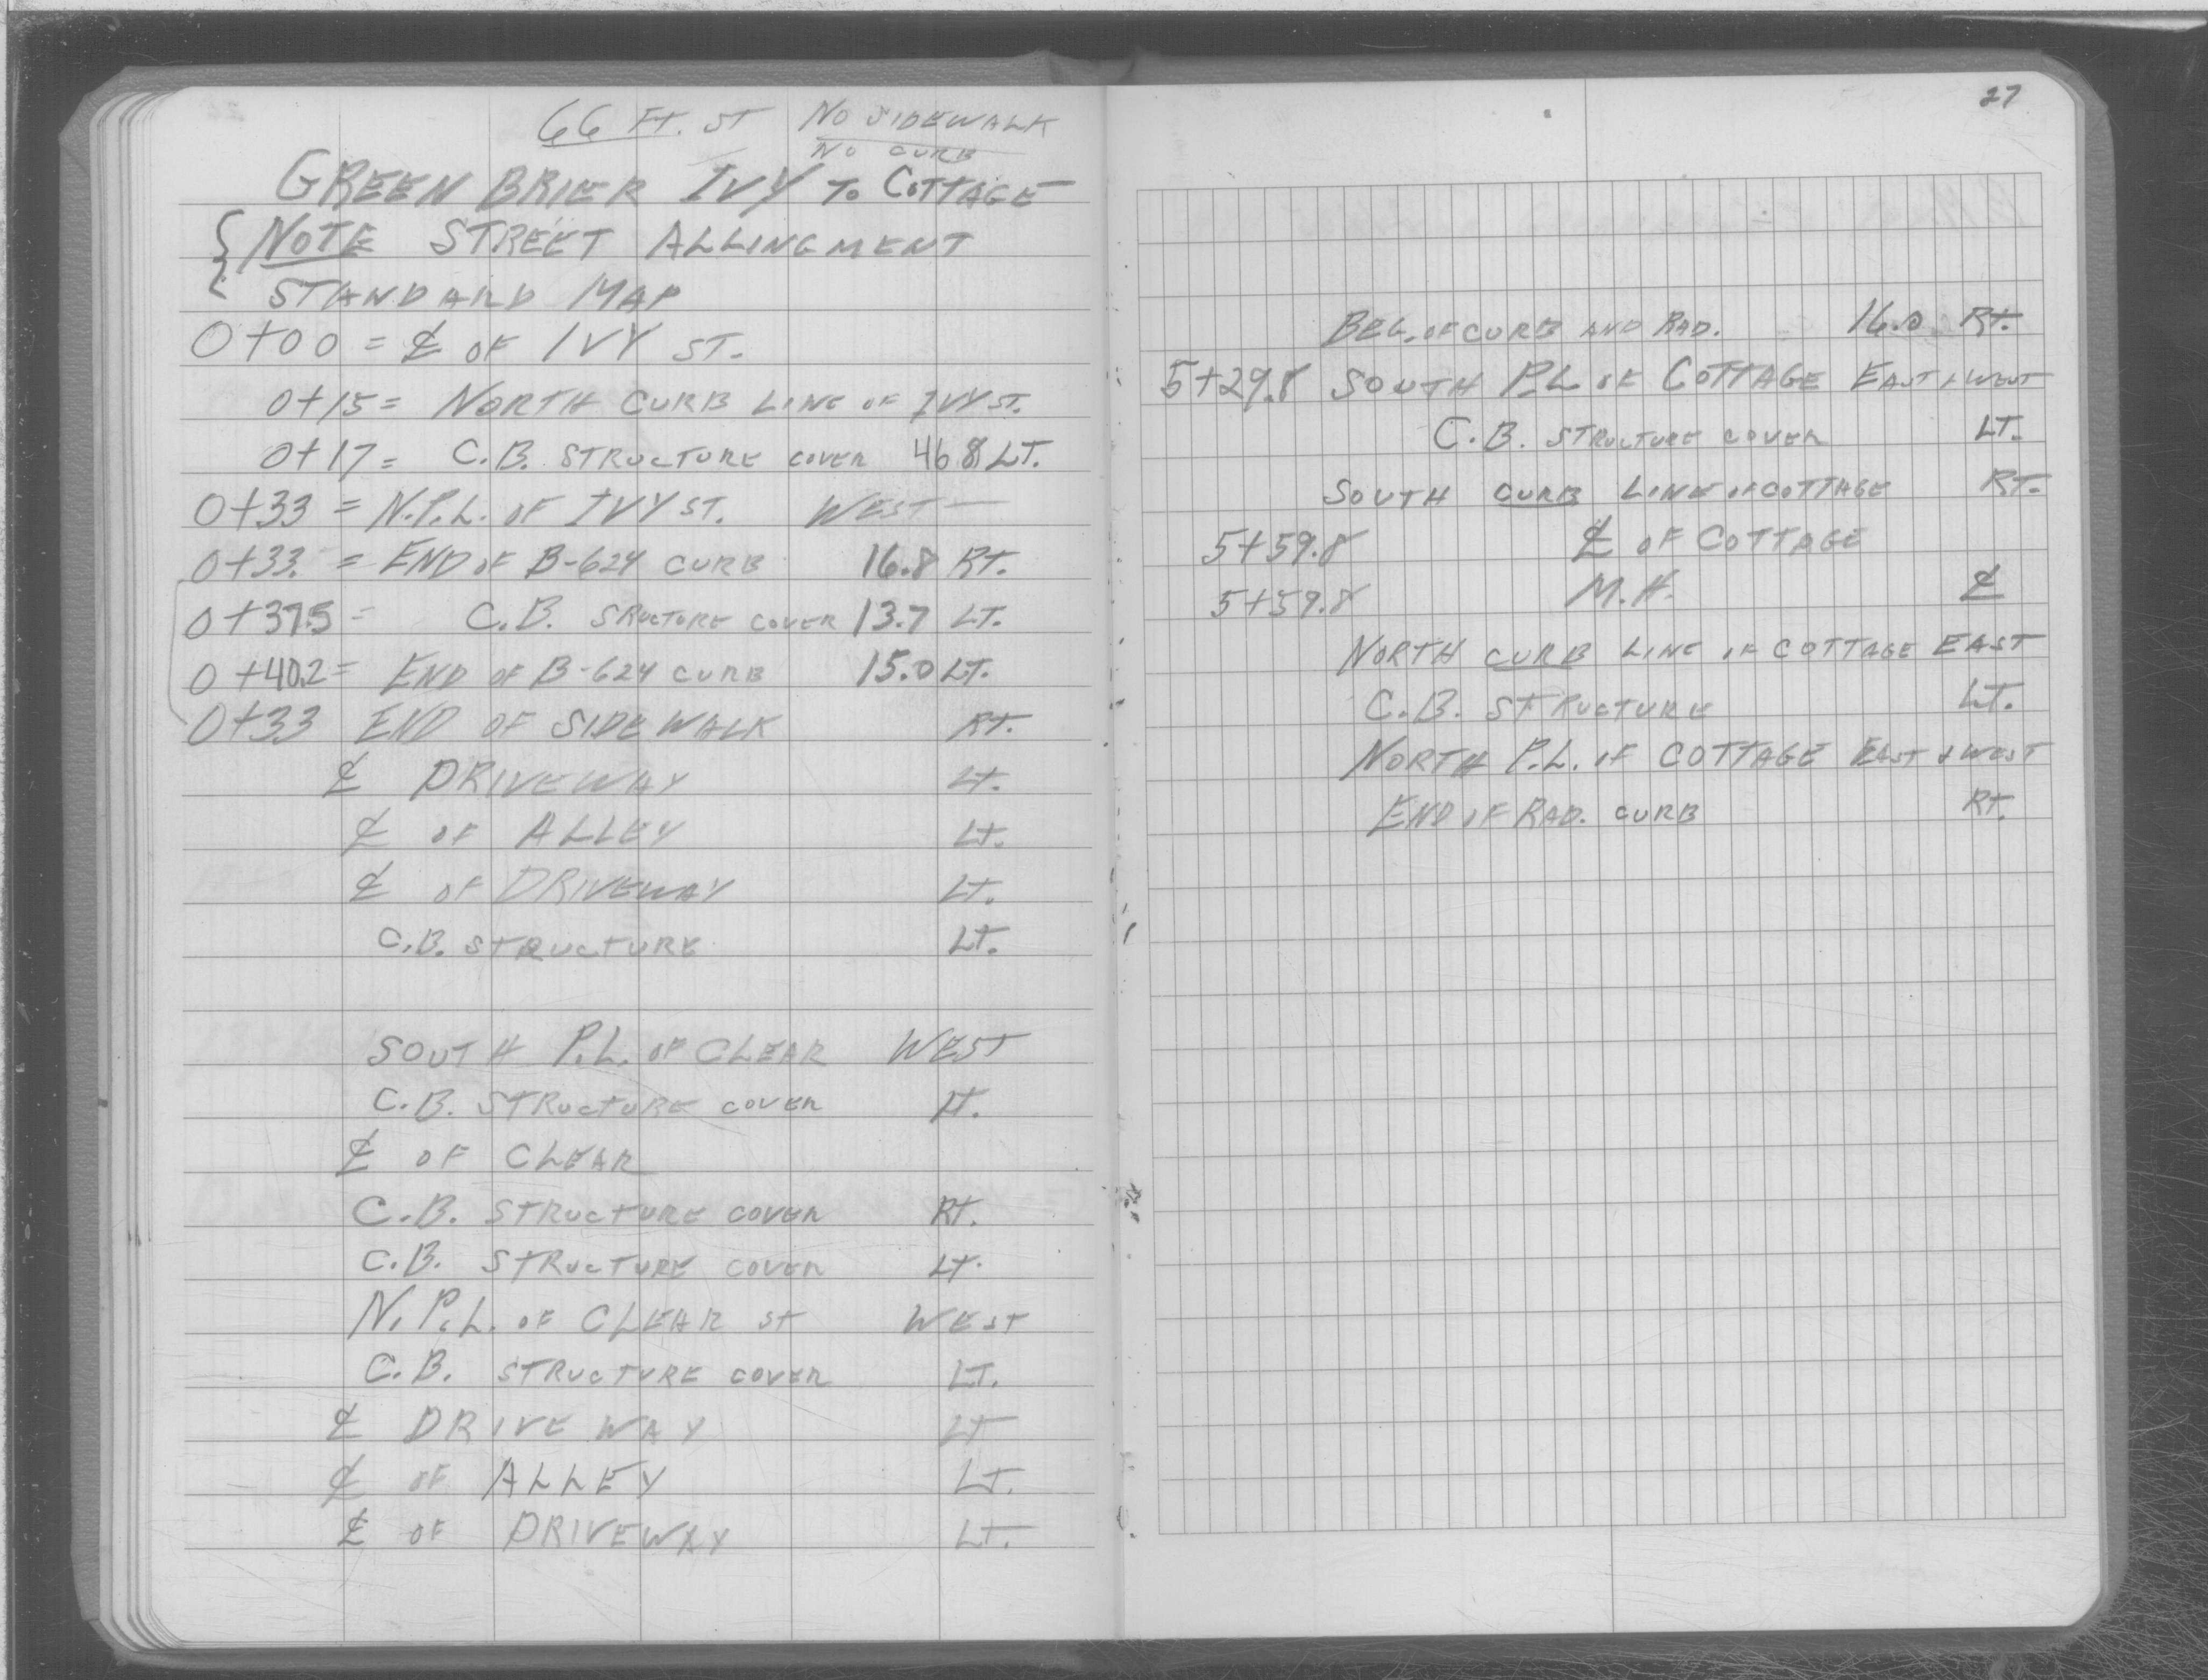 66 FT. ST NO SIDEWALK
NO CURB
GREEN BRIER IVY TO COTTAGE
{NOTE STREET ALLINGMENT
STANDARD MAP
0+00 = ℄ OF IVY ST.
0+15 = NORTH CURB LINE OF IVY ST.
0+17 = C.B. STRUCTURE COVER 46.8 LT.
0+33 = N.P.L. OF IVY ST. WEST —
0+33. = END OF B-624 CURB 16.8 RT.
0+37.5 = C.B. SRUCTURE COVER 13.7 LT.
0+40.2 = END OF B-624 CURB 15.0 LT.
0+33 END OF SIDEWALK RT.
℄ DRIVEWAY LT.
℄ OF ALLEY LT.
℄ OF DRIVEWAY LT.
C.B. STRUCTURE LT.
SOUTH P.L. OF CLEAR WEST
C.B. STRUCTURE COVER LT.
℄ OF CLEAR
C.B. STRUCTURE COVER RT.
C.B. STRUCTURE COVER LT.
N.P.L. OF CLEAR ST WEST
C.B. STRUCTURE COVER LT.
℄ DRIVEWAY LT
℄ OF ALLEY LT.
℄ OF DRIVEWAY LT.
27
BEG. OF CURB AND RAD. 16.0 RT.
5+29.8 SOUTH P.L OF COTTAGE EAST & WEST
C.B. STRUCTURE COVER LT.
SOUTH CURB LINE OF COTTAGE RT.
5+59.8 ℄ OF COTTAGE
5+59.8 M.H. ℄
NORTH CURB LINE OF COTTAGE EAST
C.B. STRUCTURE LT.
NORTH P.L. OF COTTAGE EAST & WEST
END OF RAD. CURB RT.